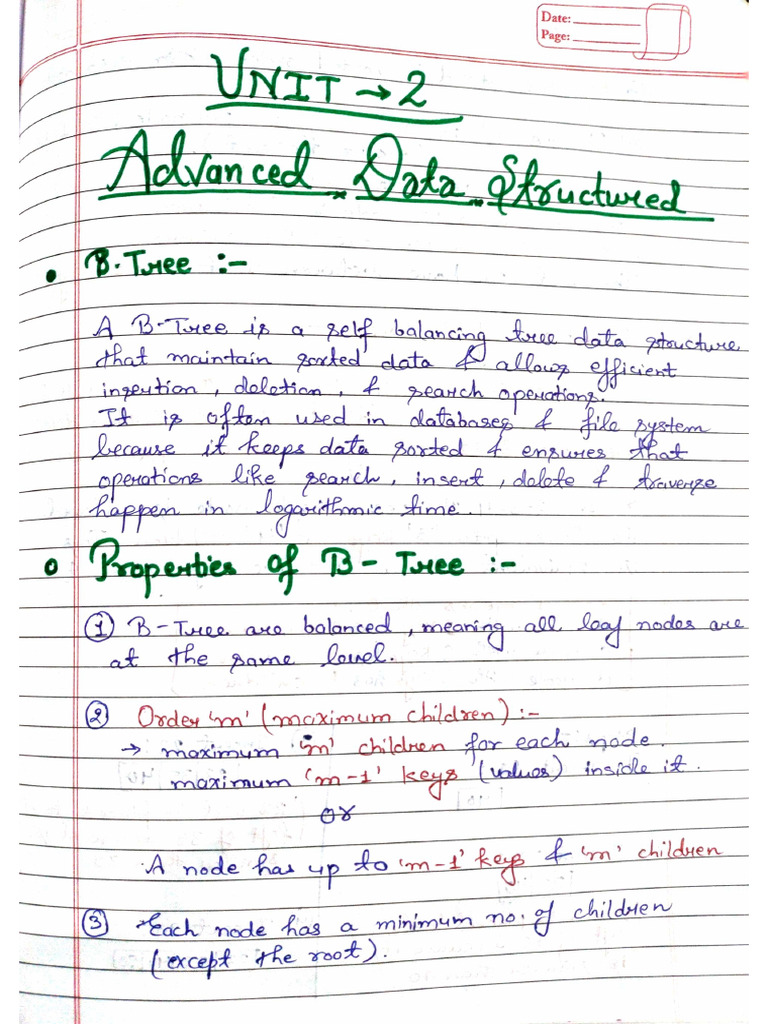 Date:
Page:
UNIT → 2
Advanced Data Structured
• B.Tree :-
A B-Tree is a self balancing tree data structure
that maintain sorted data & allows efficient
insertion, deletion, & search operations.
It is often used in databases & file system
because it keeps data sorted & ensures that
operations like search, insert, delete & traverse
happen in logarithmic time.
o Properties of B-Tree :-
① B-Tree are balanced, meaning all leaf nodes are
at the same level.
② Order 'm' (maximum children) :-
→ maximum 'm' children for each node.
maximum 'm-1' keys (values) inside it.
OR
A node has up to 'm-1' keys & 'm' children
③ Each node has a minimum no. of children
(except the root).